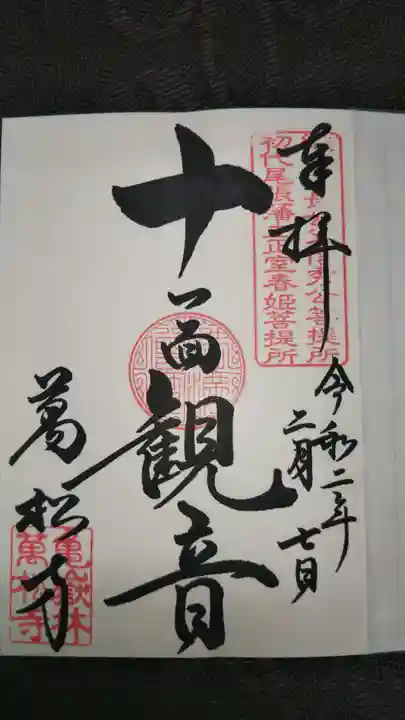 奉拝
令和二年
二月七日
初代尾張藩主正室春姫菩提所
十一面観音
萬松寺
亀嶽林
萬松寺